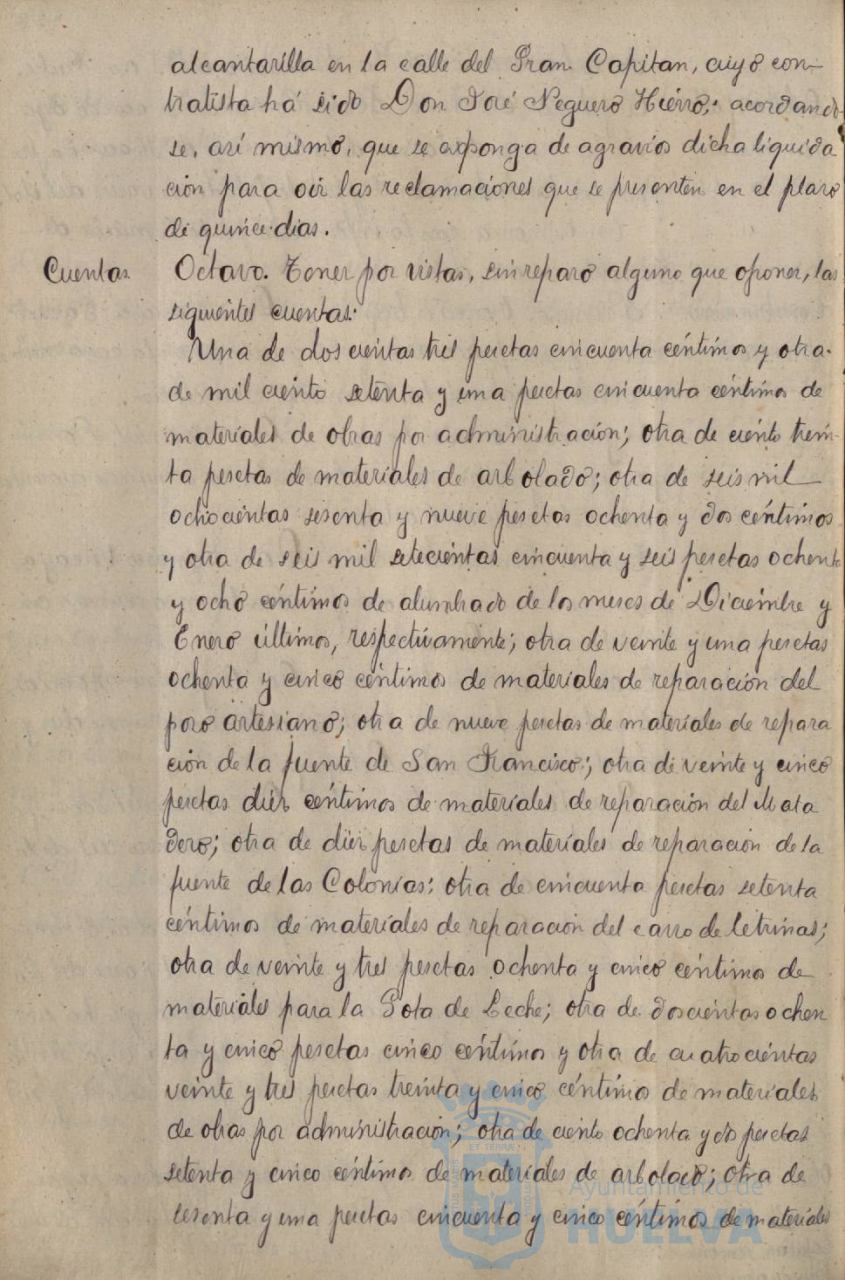 alcantarilla en la calle del Gran Capitan, cuyo con-
tratista há sido Don José Peguero Hierro; acordando-
se, así mismo, que se exponga de agravios dicha liquida
ción para oir las reclamaciones que se presenten en el plazo
de quince dias.
Cuentas. Octavo. Tener por vistas, sin reparo alguno que oponer, las
siguientes cuentas:
Una de doscientas tres pesetas cincuenta céntimos y otra
de mil ciento setenta y una pesetas cincuenta céntimos de
materiales de obras por administración; otra de ciento trein-
ta pesetas de materiales de arbolado; otra de seis mil
ochocientas sesenta y nueve pesetas ochenta y dos céntimos
y otra de seis mil setecientas cincuenta y seis pesetas ochenta
y ocho céntimos de alumbrado de los meses de Diciembre y
Enero últimos, respectivamente; otra de veinte y una pesetas
ochenta y cinco céntimos de materiales de reparación del
pozo artesiano; otra de nueve pesetas de materiales de repara
ción de la fuente de San Francisco; otra de veinte y cinco
pesetas diez céntimos de materiales de reparación del Mata
dero; otra de diez pesetas de materiales de reparación de la
fuente de las Colonias; otra de cincuenta pesetas setenta
céntimos de materiales de reparación del carro de letrinas;
otra de veinte y tres pesetas ochenta y cinco céntimos de
materiales para la Gota de Leche; otra de doscientas ochen
ta y cinco pesetas cinco céntimos y otra de cuatrocientas
veinte y tres pesetas treinta y cinco céntimos de materiales
de obras por administración; otra de ciento ochenta y dos pesetas
setenta y cinco céntimos de materiales de arbolado; otra de
sesenta y una pesetas cincuenta y cinco céntimos de materiales
Ayuntamiento de
HUELVA